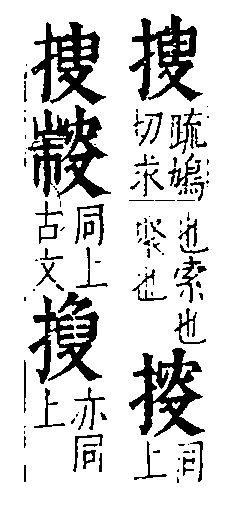 搜疏鳩切求也索也聚也同上
搜同上古文亦同上